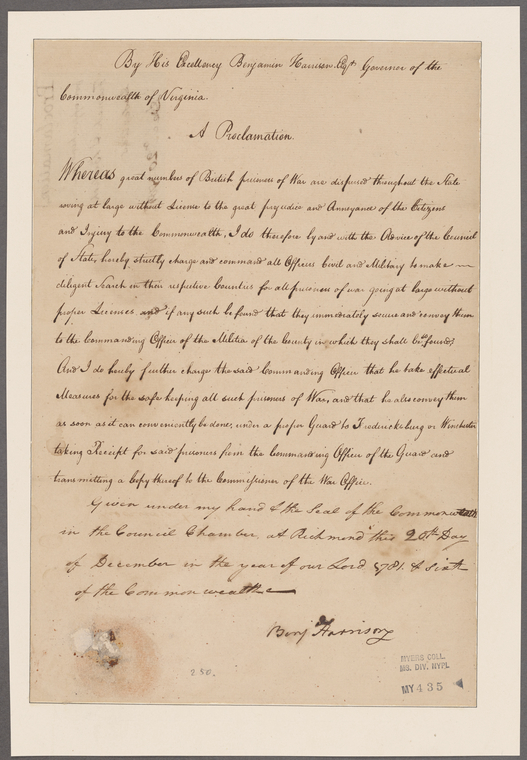 By His Excellency Benjamin Harrison Esqr Governor of the
Commonwealth of Virginia
A Proclamation.
Whereas great numbers of British prisoners of War are dispursed throughout the State
roving at large without License to the great prejudice and Annoyance of the Citizens
and Injury to the Commonwealth, I do therefore by and with the Advice of the Council
of State, hereby strictly charge and command all Officers Civil and Military to make
diligent Search in their respective Counties for all prisoners of war going at large without
proper Licenses and if any such be found that they immediately secure and convey them
to the Commanding Officer of the Militia of the County in which they shall be so found;
And I do hereby further charge the said Commanding Officer that he take effectual
Measures for the safe keeping all such prisoners of War, and that he also convey them
as soon as it can conveniently be done, under a proper Guard to Fredericksburg or Winchester
taking a Receipt for said prisoners from the Commanding Officer of the Guard and
transmitting a Copy thereof to the Commissioner of the War Office.
Given under my hand & the Seal of the Commonwealth
in the Council Chamber, at Richmond this 20th Day
of December in the year of our Lord 1781. & sixth
of the Commonwealth
Benj Harrison
250.
MYERS COLL.
MS. DIV. NYPL
MY 435